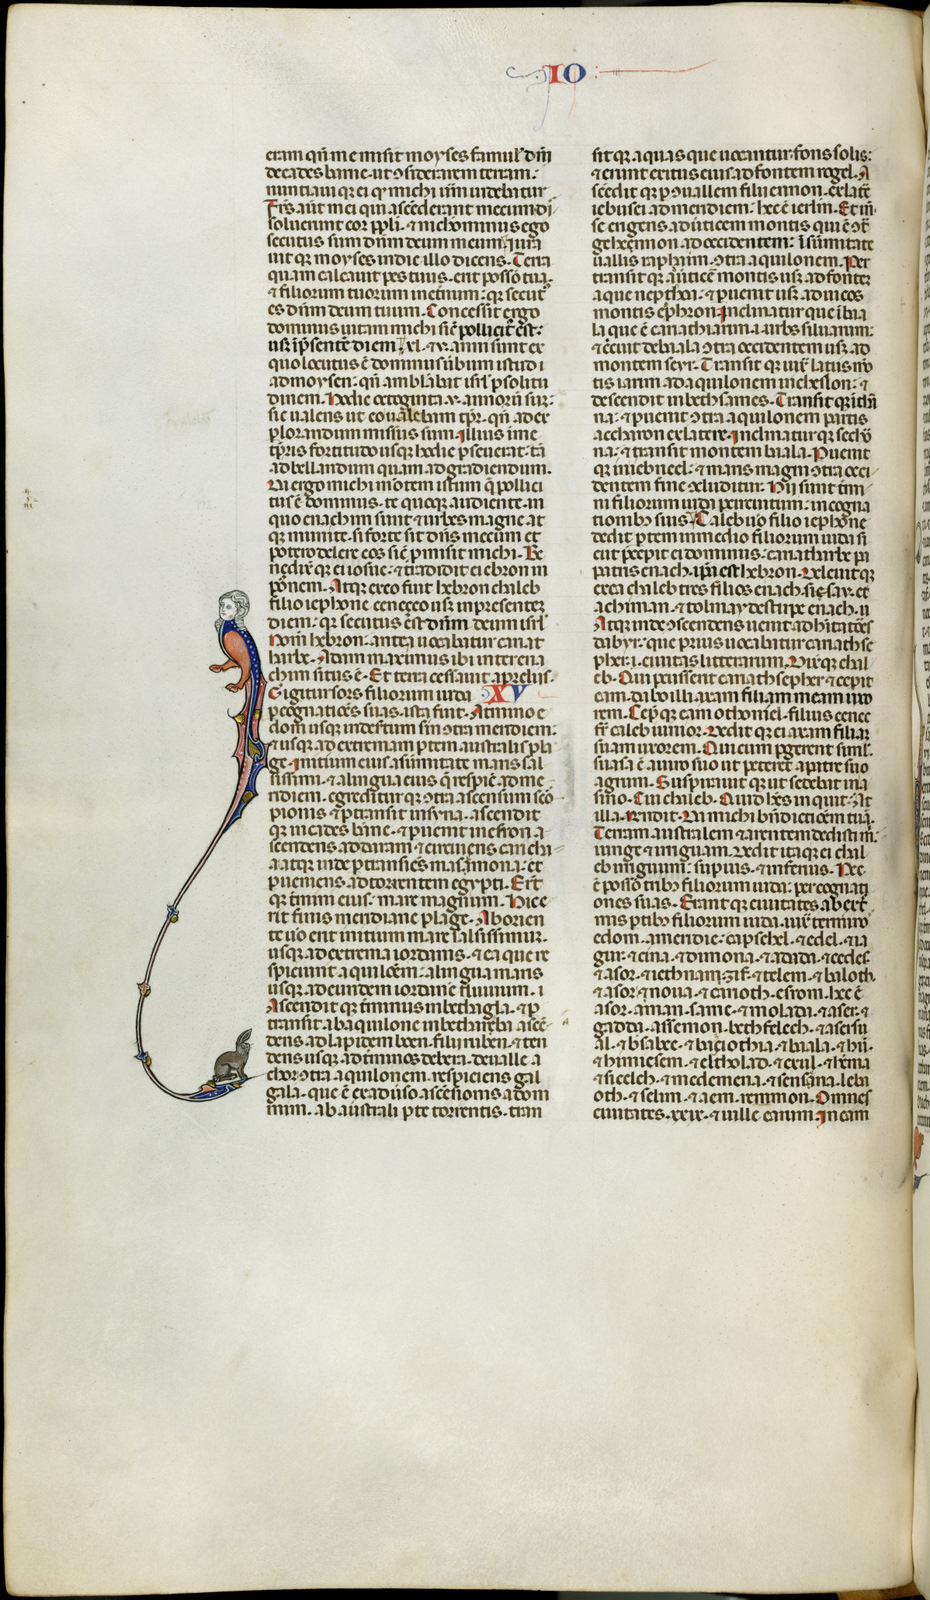 IO
eram qñ me misit moyses famul' dñi
de cades barne· ut ɔsiderarem terram·
nuntiauiq; ei qͥ michi uerum uidebatur
Frs aut mei qui ascēderant mecum di
soluerunt cor ppli· ⁊ nichominus ego
secutus sum dñm deum meum iura
uitq; moyses in die illo dicens· Terra
quam calcauit pes tuus· erit possō tua·
⁊ filiorum tuorum in etnum· q; secut'
es dñm deum tuum· Concessit ergo
dominus uitam michi sic pollicit' est·
usq; in psente diem xl· ⁊ v· anni sunt ex
quo locutus ē dominus uerbum istud
ad moysen· qñ amblabat isrl' p solitu
dinem· hodie octoginta v· annorū sum
sic ualens ut eo ualebam tpr· qñ ad ex
plorandum missus sum· illius in me
tpris fortitudo usque hodie pseuerat· tā
ad bellandum quam ad gradiendum·
Da ergo michi mōtem istum q̄ pollici
tus ē dominus· te quoq; audiente· in
quo enachim sunt ⁊ urbes magne at
q; munite· si forte sit dñs mecum et
potero delere eos sic pmisit michi· Be
nedixitq; ei iosue· ⁊ tradidit ei ebron in
possessionem· Atq; exeo fuit hebron chaleb
filio iephone cenezeo usq; in presentez
diem· q; secutus est dñm deum isrl'
Nom hebron· antea uocabatur cariat
harbe· Adam maximus ibi inter ena
chim situs ē· Et terra cessauit a preliis·
Igitur sors filiorum iuda XV
p cognatiōes suas· ista fuit· A tmino e
dom usque in desertum sin ɔtra meridiem·
⁊ usque ad extremam ptem australis pla
ge· initium eius a sumitate maris sal
sissimi· ⁊ a lingua eius q̄ respic̄ ad me
ridiem· egrediturq; ɔtra ascensum sco
pionis ⁊ ptransit in syna· ascendit
q; in cades barne· ⁊ puenit in esron· a
scendens addaram· ⁊ circuiens carchi
a· atq; inde ptransiēs in asmona· et
pueniens ad torrentem egypti· Erit
q; tmini eius· mare magnum· Hic e
rit finis meridiane plage· Ab orien
te uo erit initium mare salsissimum·
usque ad extrema iordanis· ⁊ ea que re
spiciunt aquilōem· a lingua maris
usque ad eundem iordine fluuium·
Ascenditq; tminus in bethagla· ⁊ p
transit ab aquilone in betharaba ascē
dens ad lapidem boen· filii ruben· ⁊ ten
dens usque ad tminos debera· de ualle a
chor ɔtra aquilonem· respiciens gal
gala· que ē ex aduso ascēsionis adom
mim· ab australi pte torrentis· tran
sitq; aquas que uocantur· fons solis·
⁊ erunt exitus eius ad fontem rogel· A
scēditq; p ɔuallem filii ennon· ex latē
iebusei ad meridiem· hec ē ierlm· Et in
se erigens ad uticem montis qui ē ɔt
gehennon ad occidentem· ī sumitate
uallis raphaim· ɔtra aquilonem· Per
transitq; a uticē montis usq; ad fontez
aque nepthoa· ⁊ puenit usq; ad uicos
montis ephron· inclinaturq; in baa
la que ē cariathiarim· i· urbs siluarum·
⁊ circuit de baala ɔtra occidentem usq; ad
montem seyr· Transitq; iux' latus mō
tis iarim ad aquilonem in cheslon· ⁊
descendit in bethsames· Transitq; in tham
na· ⁊ puenit ɔtra aquilonem partis
accharon ex latere· inclinaturq; sechrō
na· ⁊ transit montem baala· Puenit
q; in iebneel· ⁊ maris magni ɔtra occi
dentem fine ɔcluditur· Hii sunt tmi
ni filiorum iuda p circuitum· in cogna
tionib; suis· Caleb uo filio iephone
dedit ptem in medio filiorum iuda si
cut pcepit ei dominus· cariatharbe pa
patris enach· ipsa est hebron· Deleuitq;
ex ea chaleb tres filios enach· sisay· et
achiman· ⁊ tolmay de stirpe enach·
Atq; inde ɔscendens uenit ad hitatōēs
dabyr· que prius uocabatur cariathse
pher· i· ciuitas litterarum· Dixitq; chal
eb· Qui pcusserit cariathsepher ⁊ cepit
eam· dabo illi axam filiam meam uxo
rem· Cepitq; eam othoniel· filius cenez
fr̄ caleb iunior· Deditq; ei axam filiaz
suam uxorem· Que cum pgerent simul·
suasa ē a uiro suo ut peteret a patre suo
agrum· Suspirauitq; ut sedebat in a
sino· Cui chaleb· Quid hēs inquit· At
illa rn̄dit· Da michi bn̄dictiōem tuā·
Terram australem ⁊ arentem dedisti m·
iunge ⁊ irriguam· Dedit itaq; ei chal
eb irriguum· supius· ⁊ inferius· Hec
ē possō tribus filiorum iuda· per cognati
ones suas· Erantq; ciuitates ab extre
mis ptib; filiorum iuda· iux' terminos
edom· a meridie· capsehel· ⁊ edel· ⁊ ia
gur· ⁊ cina· ⁊ dimona· ⁊ adada· ⁊ cedes·
⁊ asor· ⁊ iethnam· zif· ⁊ telem· ⁊ baloth·
⁊ asor ⁊ noua· ⁊ carioth· esrom· hec ē
asor· aman· same· ⁊ molada· ⁊ aser·
gadda· assemon· bethfelech· ⁊ asersu
al· ⁊ bsabee· ⁊ baciothia· ⁊ baala· ⁊ hii·
⁊ himiesem· ⁊ eltholad· ⁊ exul· ⁊ herma
⁊ siceleh· ⁊ medemena· ⁊ sensana· leba
oth· ⁊ selim· ⁊ aem· remmon· Omnes
ciuitates· xxix· ⁊ uille earum· in cam